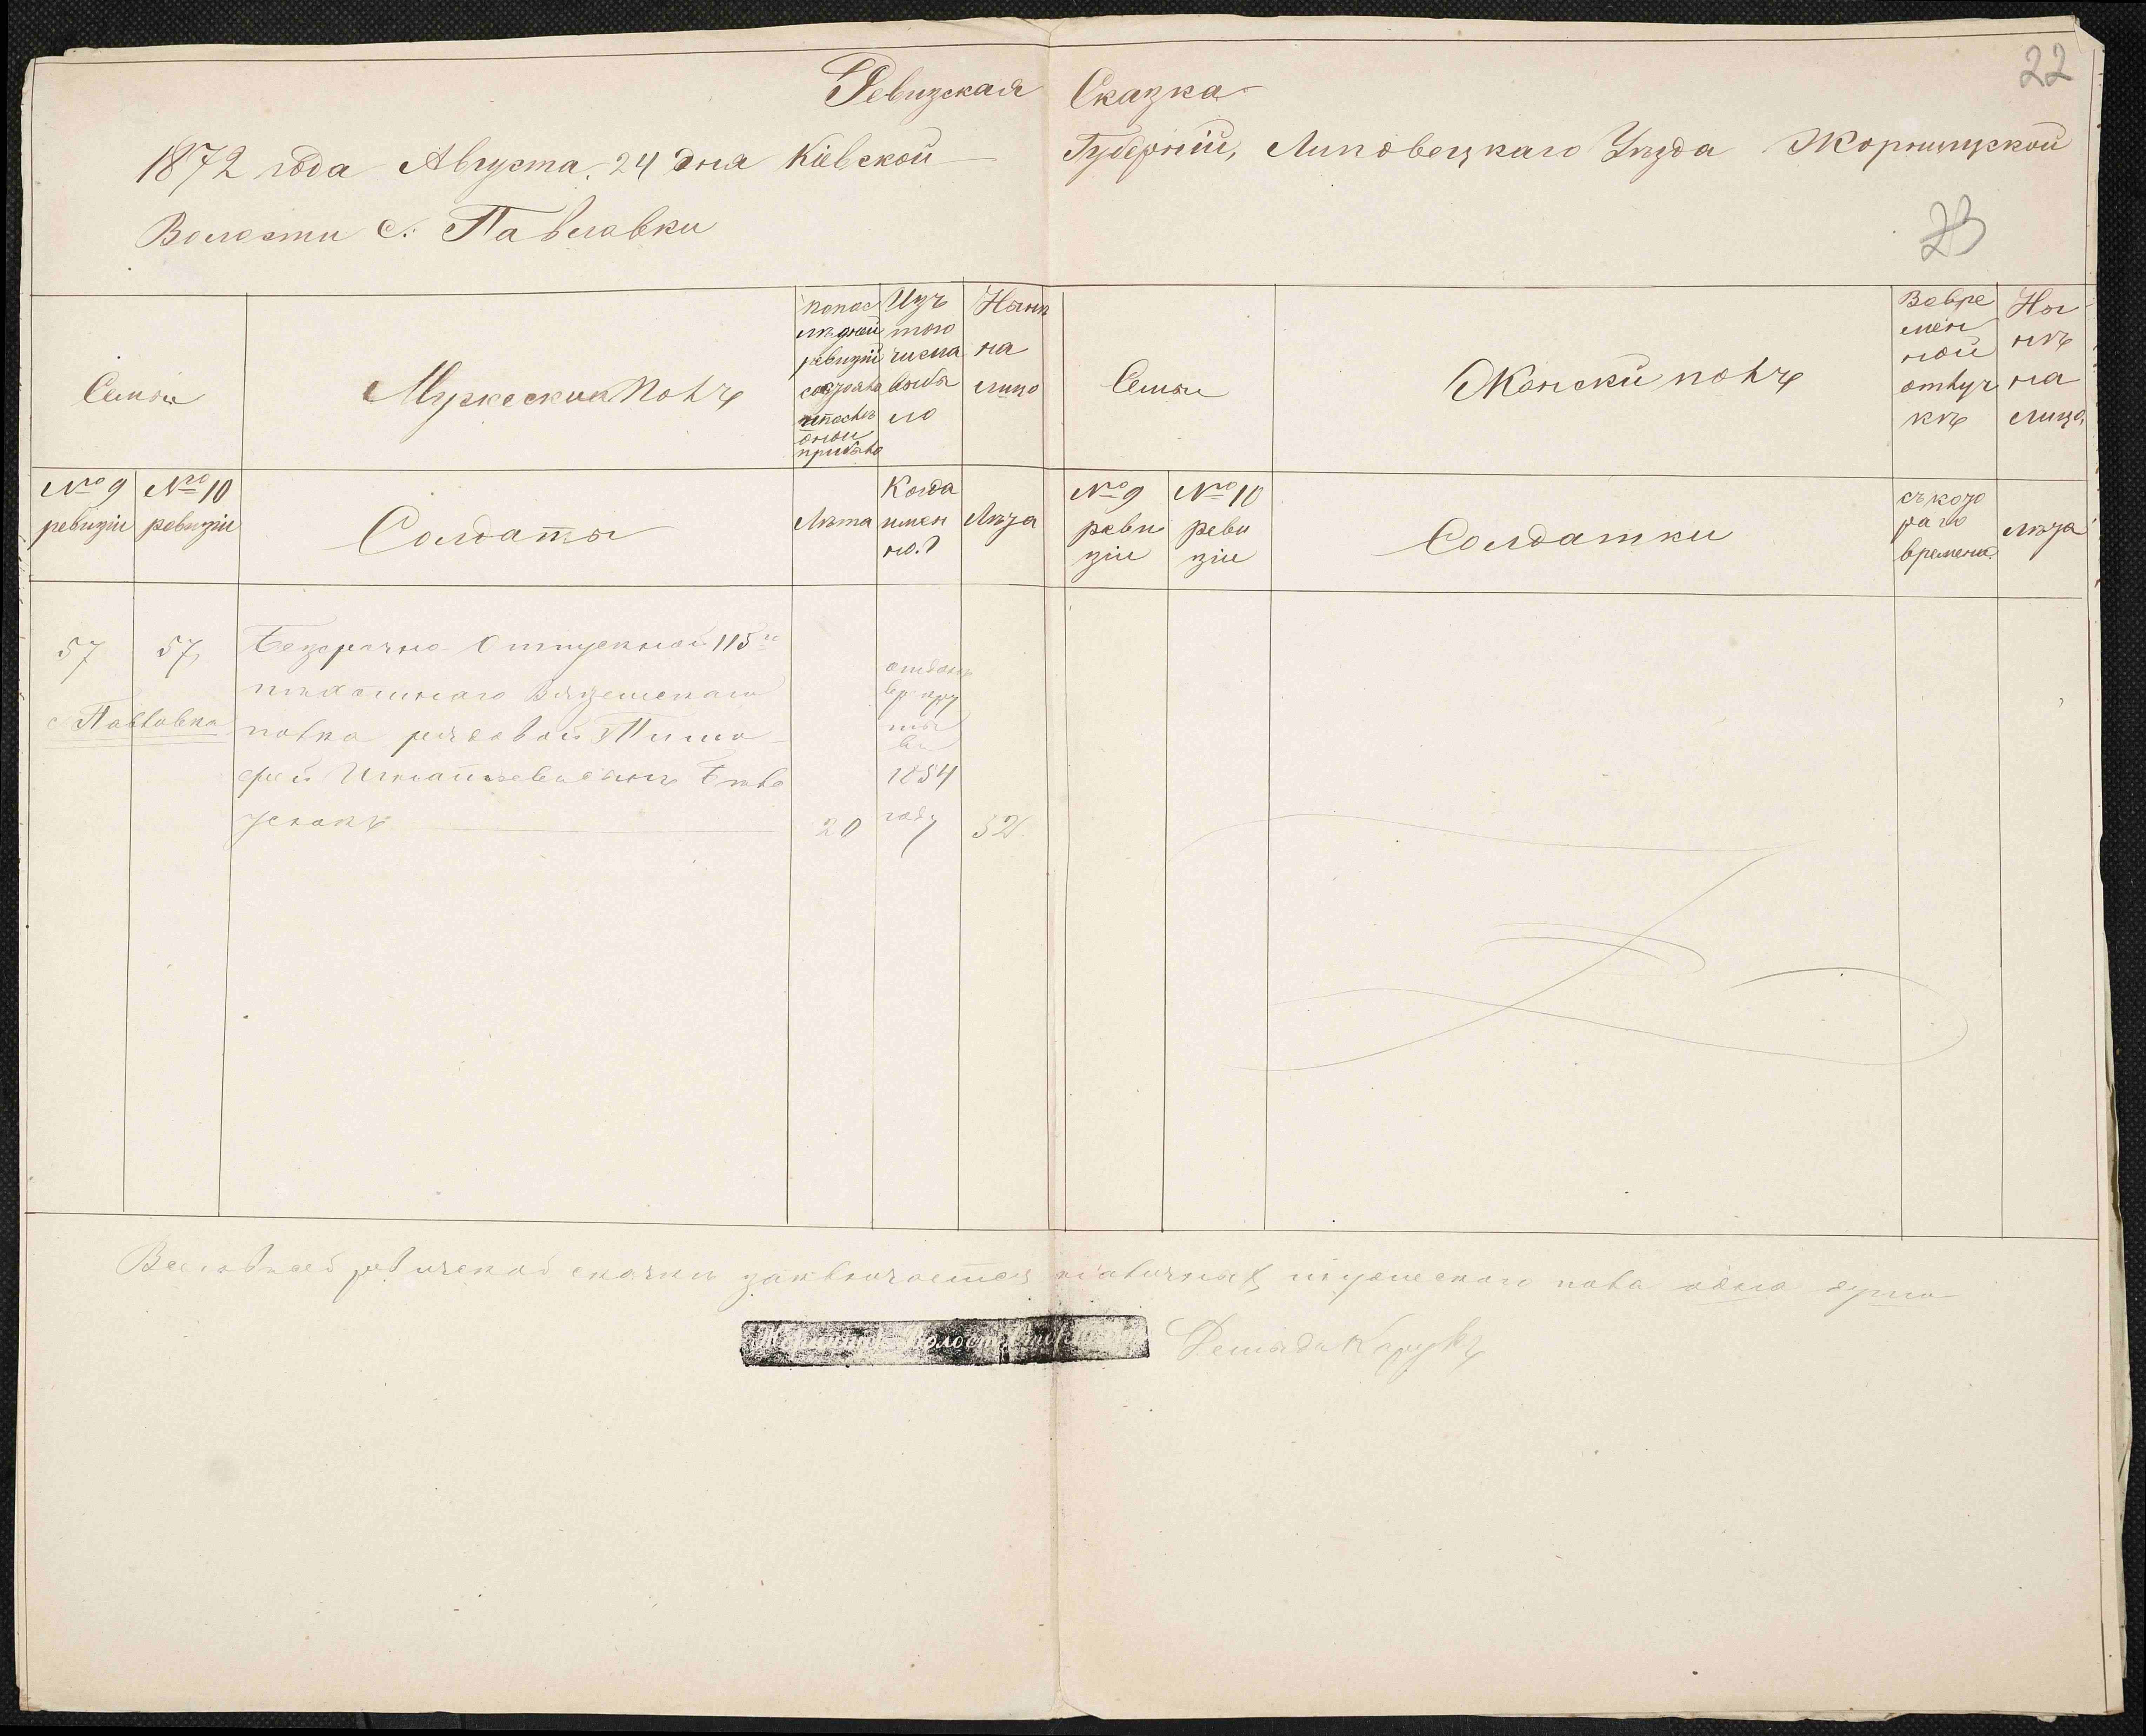 22
Ревизская Сказка
1872 года Августа 24 дня Кіевской Губерніи, Липовецкаго Уѣзда Жорнищской
Волости с. Павловки
23
Семьи
Мужескій полъ
По последней
ревизіи
состояло
и после
оной
прибыло
Изъ
того
числа
выбы
ло
Нынѣ
на
лицо
Семьи
Женскій полъ
Вовре
мен
ной
отлуч
кѣ
Ны
нѣ
на
лицо
№ 9
ревизіи
№ 10
ревизіи
Солдаты
Лѣта
Когда
имен
но?
Лѣта
№ 9
реви
зіи
№ 10
реви
зіи
Солдатки
съ кото
раго
времени
Лѣта
57
57
с. Павловка
Безсрочно Отпускной 115го
пѣхотнаго Вяземскаго
полка рядовой Тимо
фей Игнатьевъ
20
1854
году
32
ревизской сказки заключается наличныхъ мужескаго пола одна душа
Демида